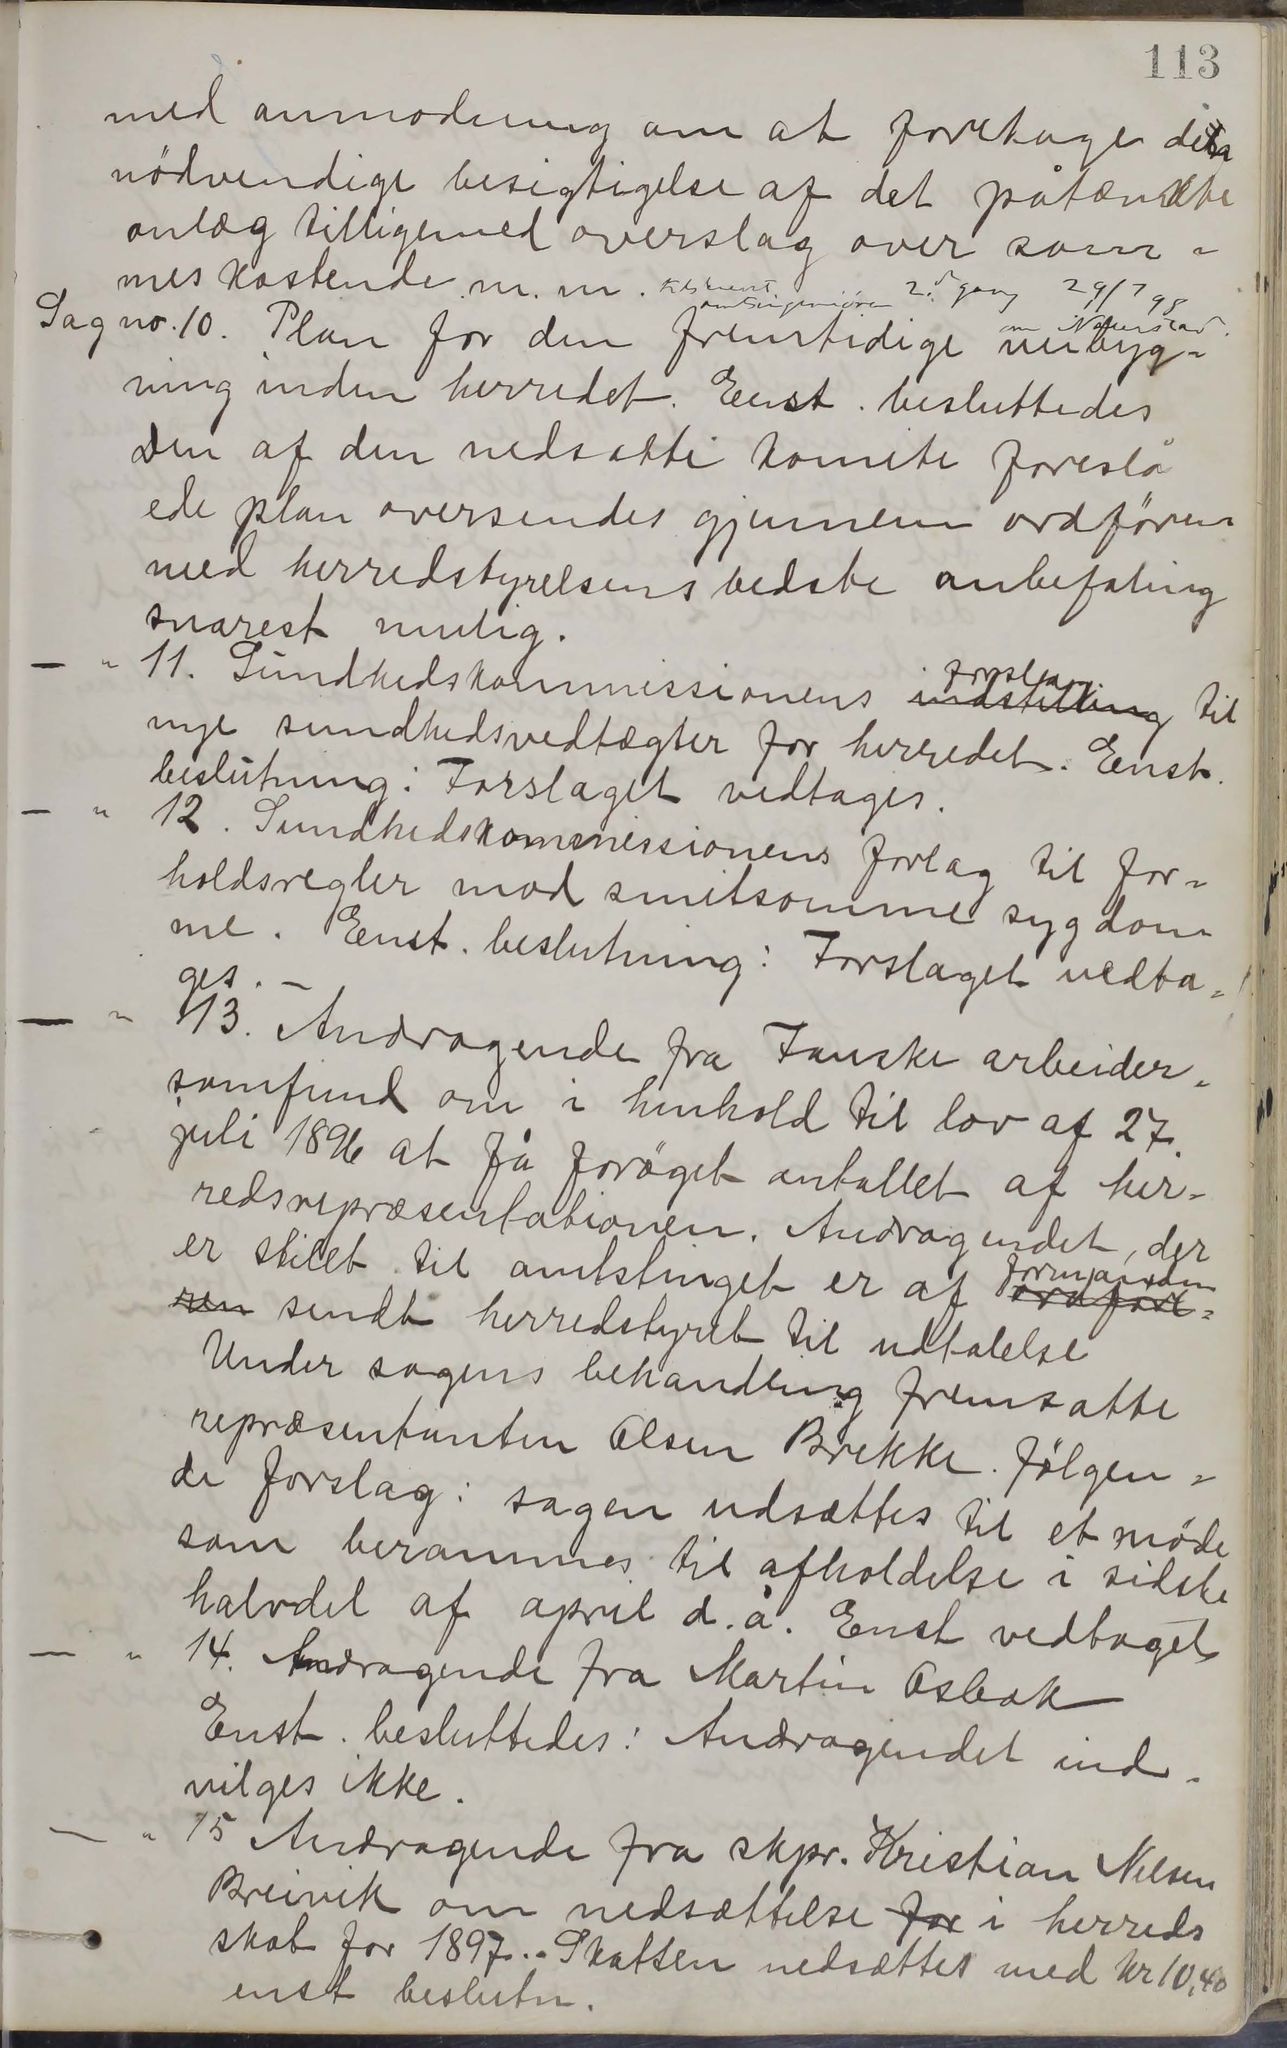 113
med anmodning om at foretage den
nödvendige besigtigelse af det påtænkte
anlæg tilligemed overslag over sam-
mes kostende m.m. tilskrevet amtsingeniören 2den gang 29/7 98
Sag no. 10. Plan for den fremtidige veibyg-
ning inden herredet. Eenst. besluttedes
Den af den nedsatte komite foreslå
ede plan oversendes gjennem ordfören
med herredstyrelsens bedste anbefaling
snarest mulig.
— " 11. Sundhedskommissionens indstilling forslag til
nye sundhedsvedtægter for herredet. Eenst.
beslutning: Forslaget vedtages.
— " 12. Sundhedskommissionens forlag til for-
holdsregler mod smitsomme sygdom-
me. Eenst. beslutning: Forslaget vedta-
ges. —
— " 13. Andragende fra Fauske arbeider-
samfund om i henhold til lov af 27.
juli 1896 at få foröget antallet af her-
redsrepræsentationen. Andragendet, der
er stilet til amtstinget er af ordföre- formanden
ren sendt herredstyret til udtalelse
Under sagens behandling fremsatte
repræsentanten Olsen Brekke fölgen-
de forslag: sagen udsættes til et möde
som berammes til afholdelse i sidste
halvdel af april d.å. Enst vedtaget
— " 14. Andragende fra Martin Osbak
Enst. besluttedes: Andragendet ind-
vilges ikke.
— " 15 Andragende fra skpr. Kristian Nilsen
Breivik om nedsættelse for i herreds
skat for 1897. - Skatten nedsættes med kr 10,40
enst beslutn.